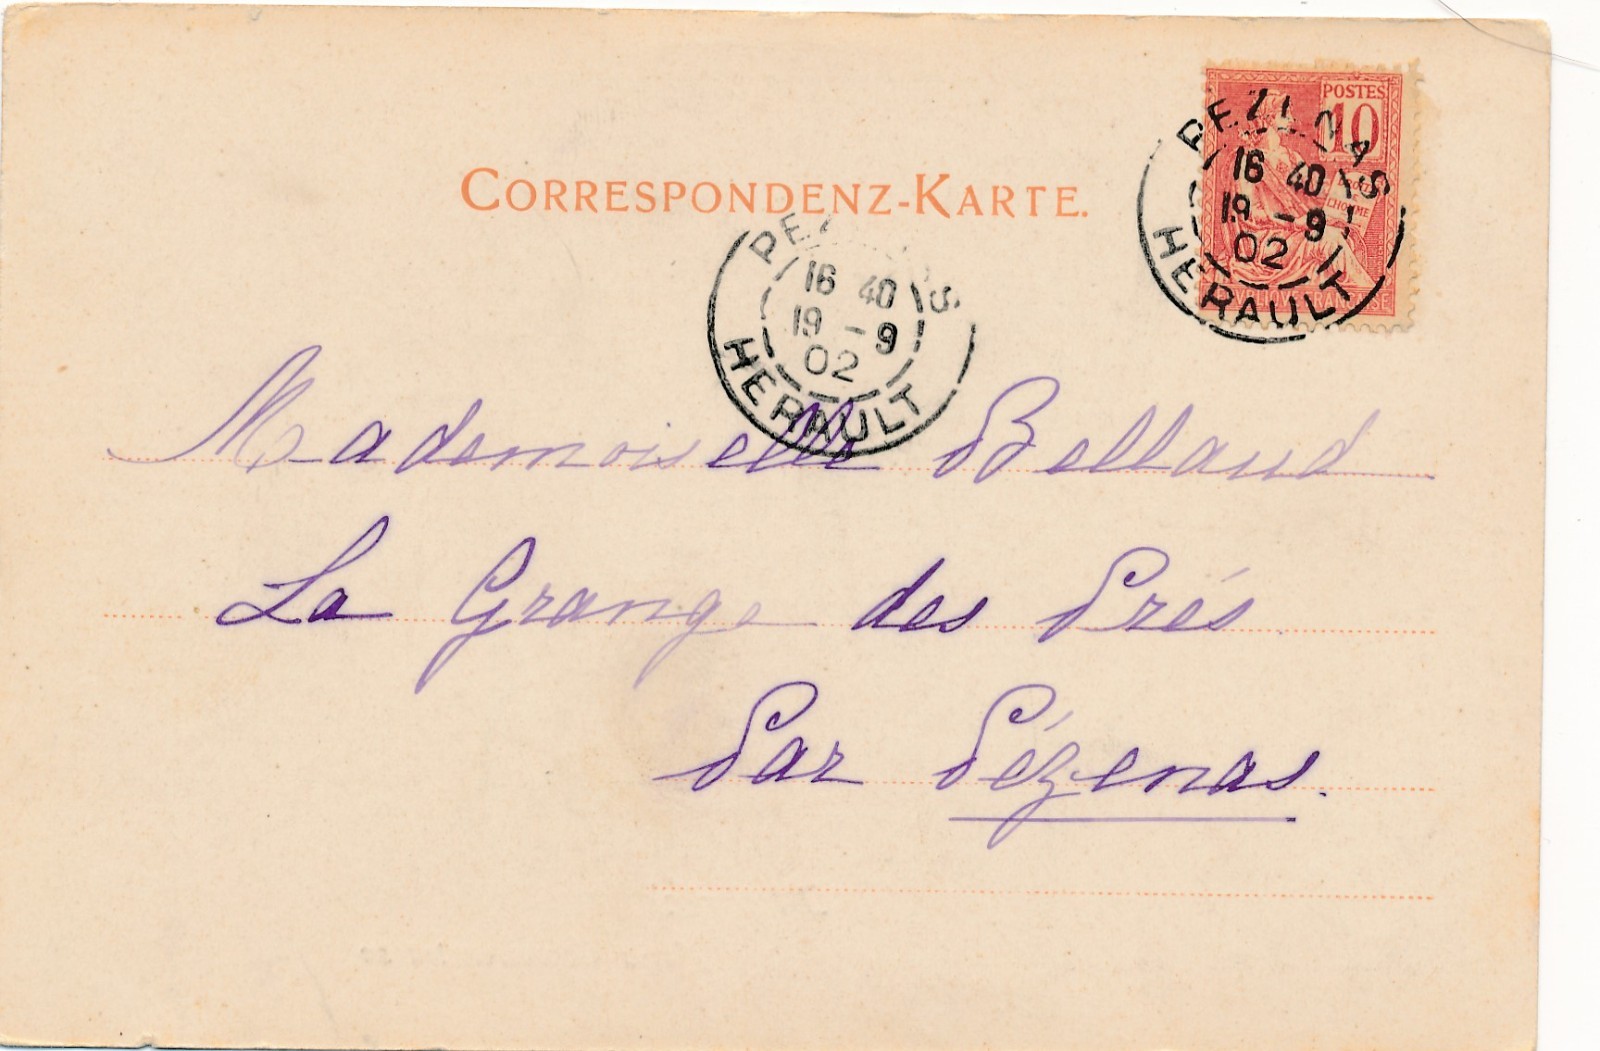 CORRESPONDENZ-KARTE.
POSTES
10
PEZENAS
16 40
19 -9
02
HERAULT
16 40
19 -9
02
HERAULT
Mademoiselle Bellaud
La Grange des Prés
Par Pézenas.